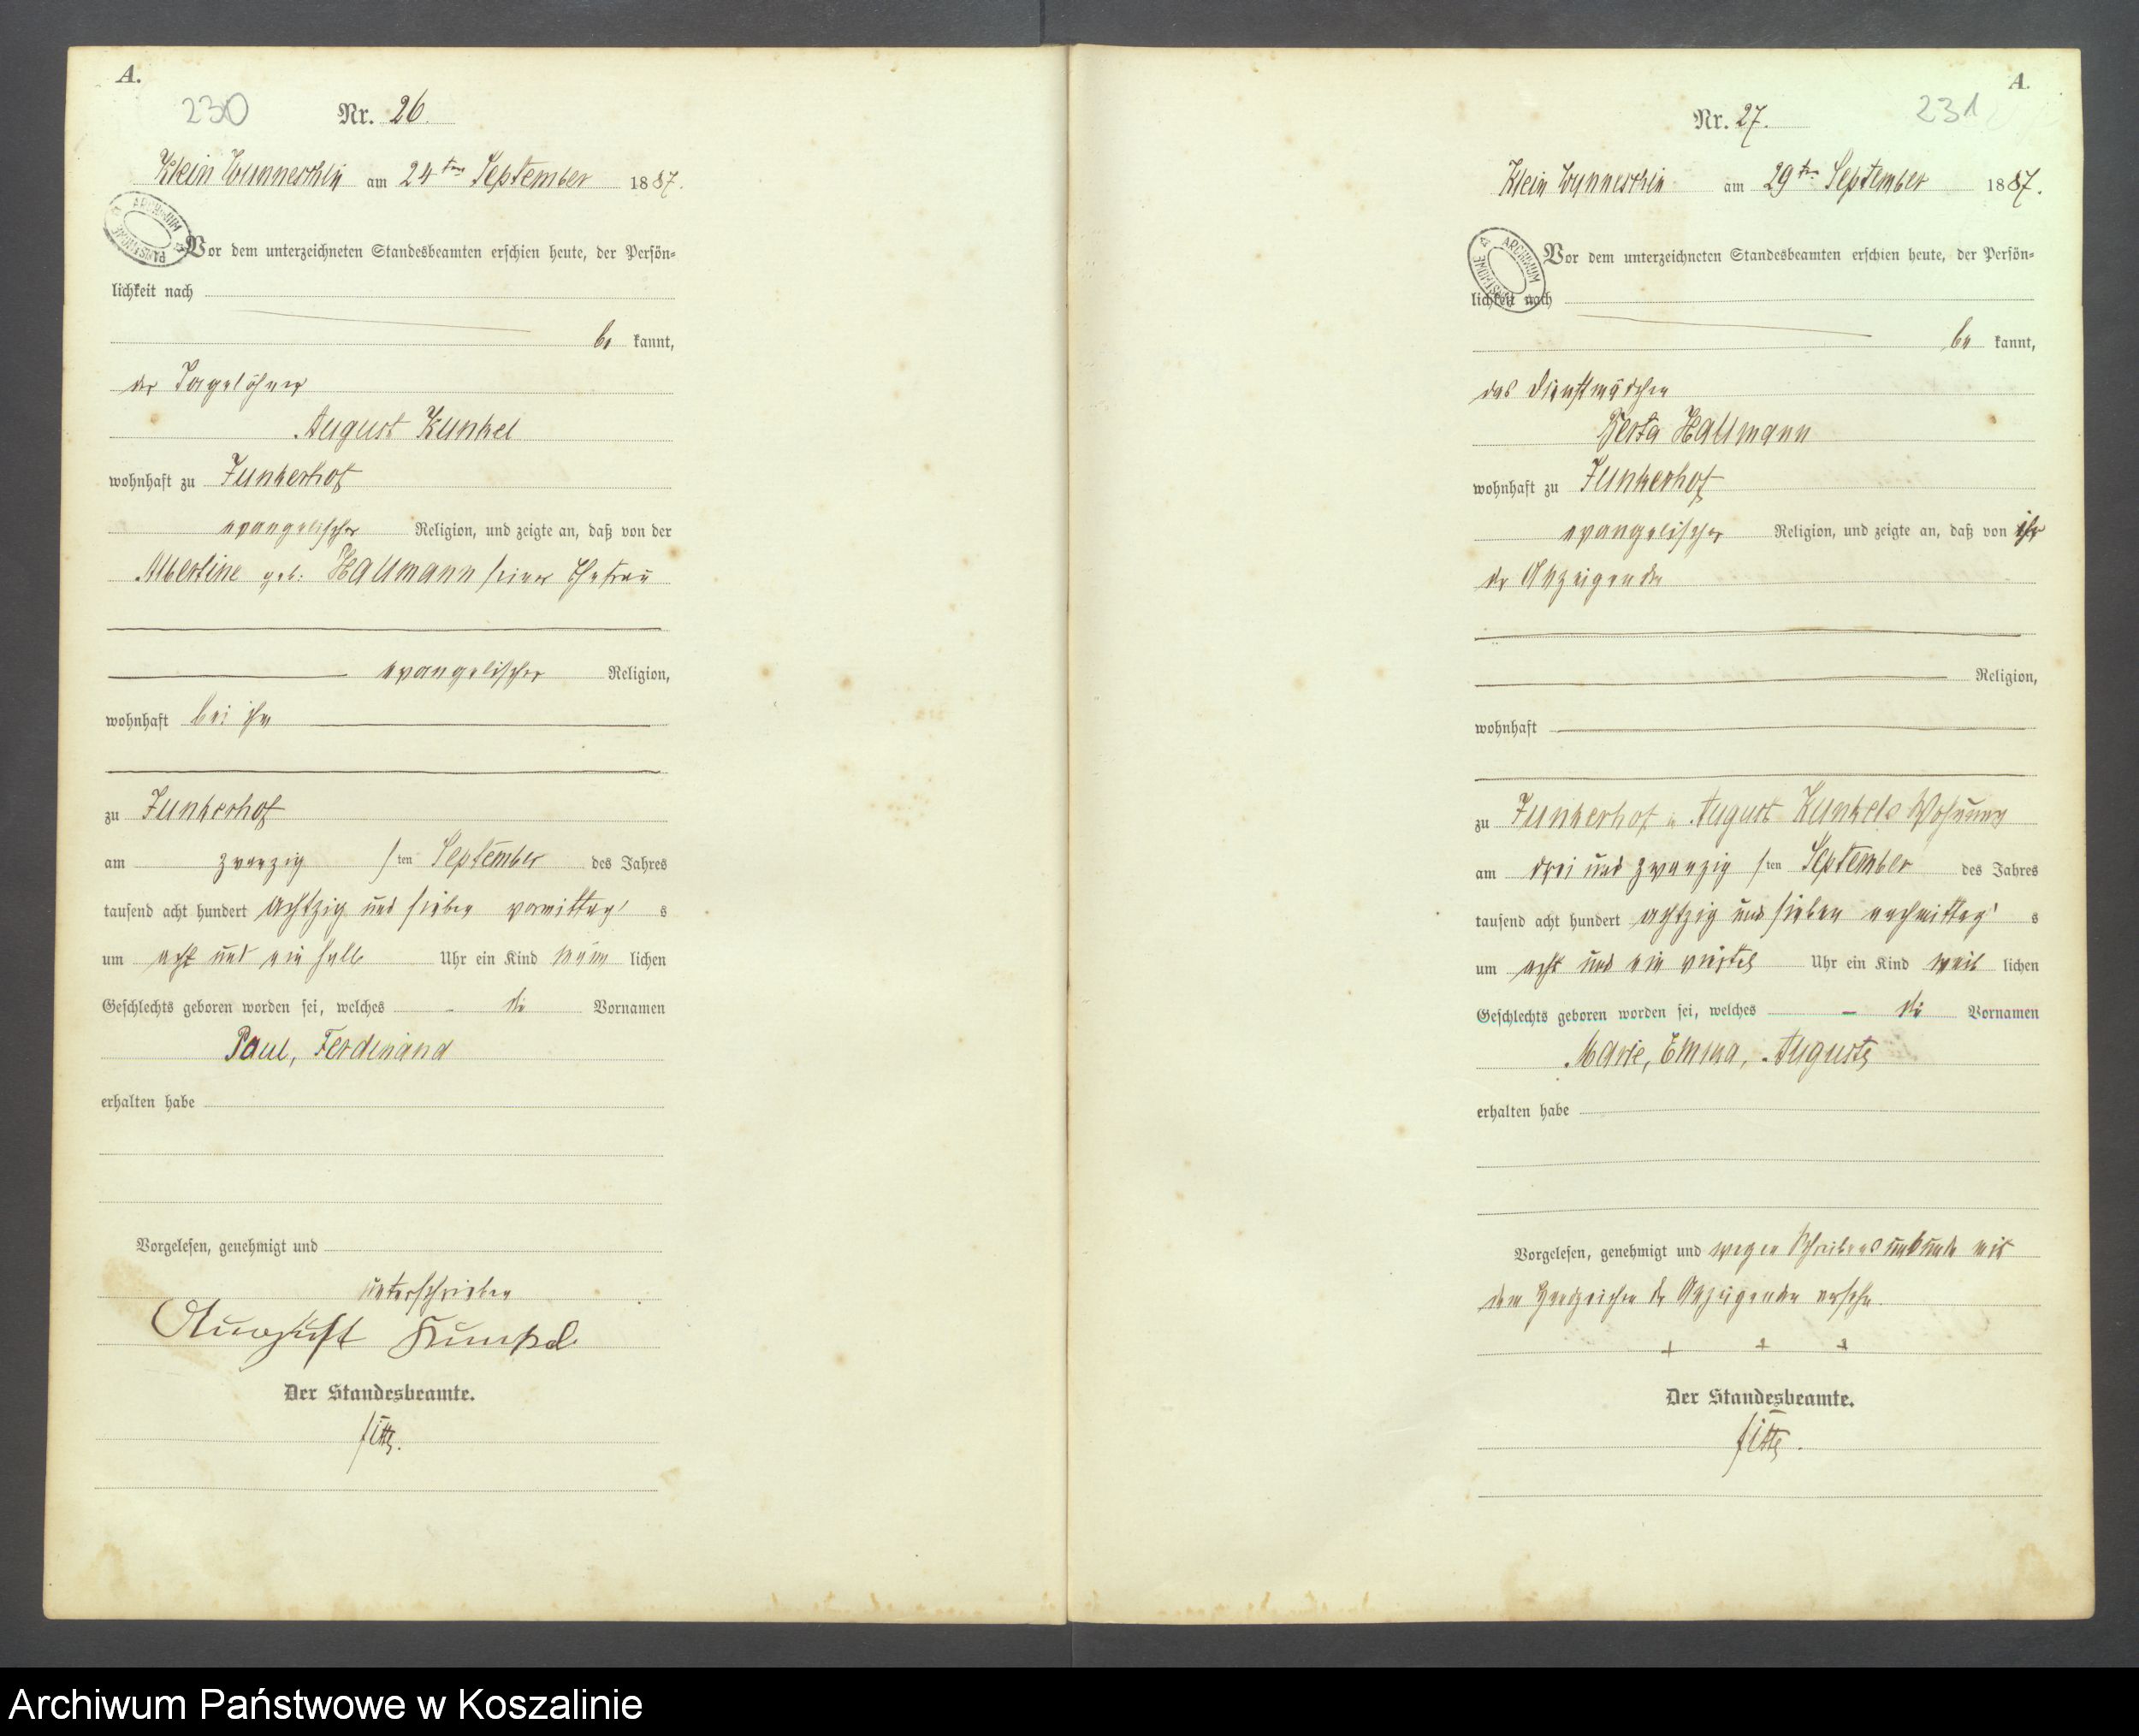 A.
230
Nr. 26.
Klein Wunneschin am 24ten September 1887.
ARCHIWUM PAŃSTWOWE
Vor dem unterzeichneten Standesbeamten erschien heute, der Persön-
lichkeit nach
be kannt,
der Tagelöhner
August Kunkel
wohnhaft zu Junkerhof
evangelischer Religion, und zeigte an, daß von der
Albertine geb. Hallmann seiner Ehefrau
evangelischer Religion,
wohnhaft bei ihm
zu Junkerhof
am zwanzig sten September des Jahres
tausend acht hundert achtzig und sieben vormittag s
um acht und ein halb Uhr ein Kind männ lichen
Geschlechts geboren worden sei, welches die Vornamen
Paul, Ferdinand
erhalten habe
Vorgelesen, genehmigt und
unterschrieben
August Kunkel
Der Standesbeamte.
A.
231
Nr. 27.
Klein Wunneschin am 29ten September 1887.
ARCHIWUM PAŃSTWOWE
Vor dem unterzeichneten Standesbeamten erschien heute, der Persön-
lichkeit nach
be kannt,
das Dienstmädchen
Berta Hallmann
wohnhaft zu Junkerhof
evangelischer Religion, und zeigte an, daß von ihr
der Anzeigenden
Religion,
wohnhaft
zu Junkerhof in August Kunkels Wohnung
am drei und zwanzig sten September des Jahres
tausend acht hundert achtzig und sieben nachmittag s
um acht und ein viertel Uhr ein Kind weib lichen
Geschlechts geboren worden sei, welches die Vornamen
Marie, Emma, Auguste
erhalten habe
Vorgelesen, genehmigt und wegen Schreibensunkunde mit
dem Handzeichen der Anzeigenden versehn.
+ + +
Der Standesbeamte.
Archiwum Państwowe w Koszalinie